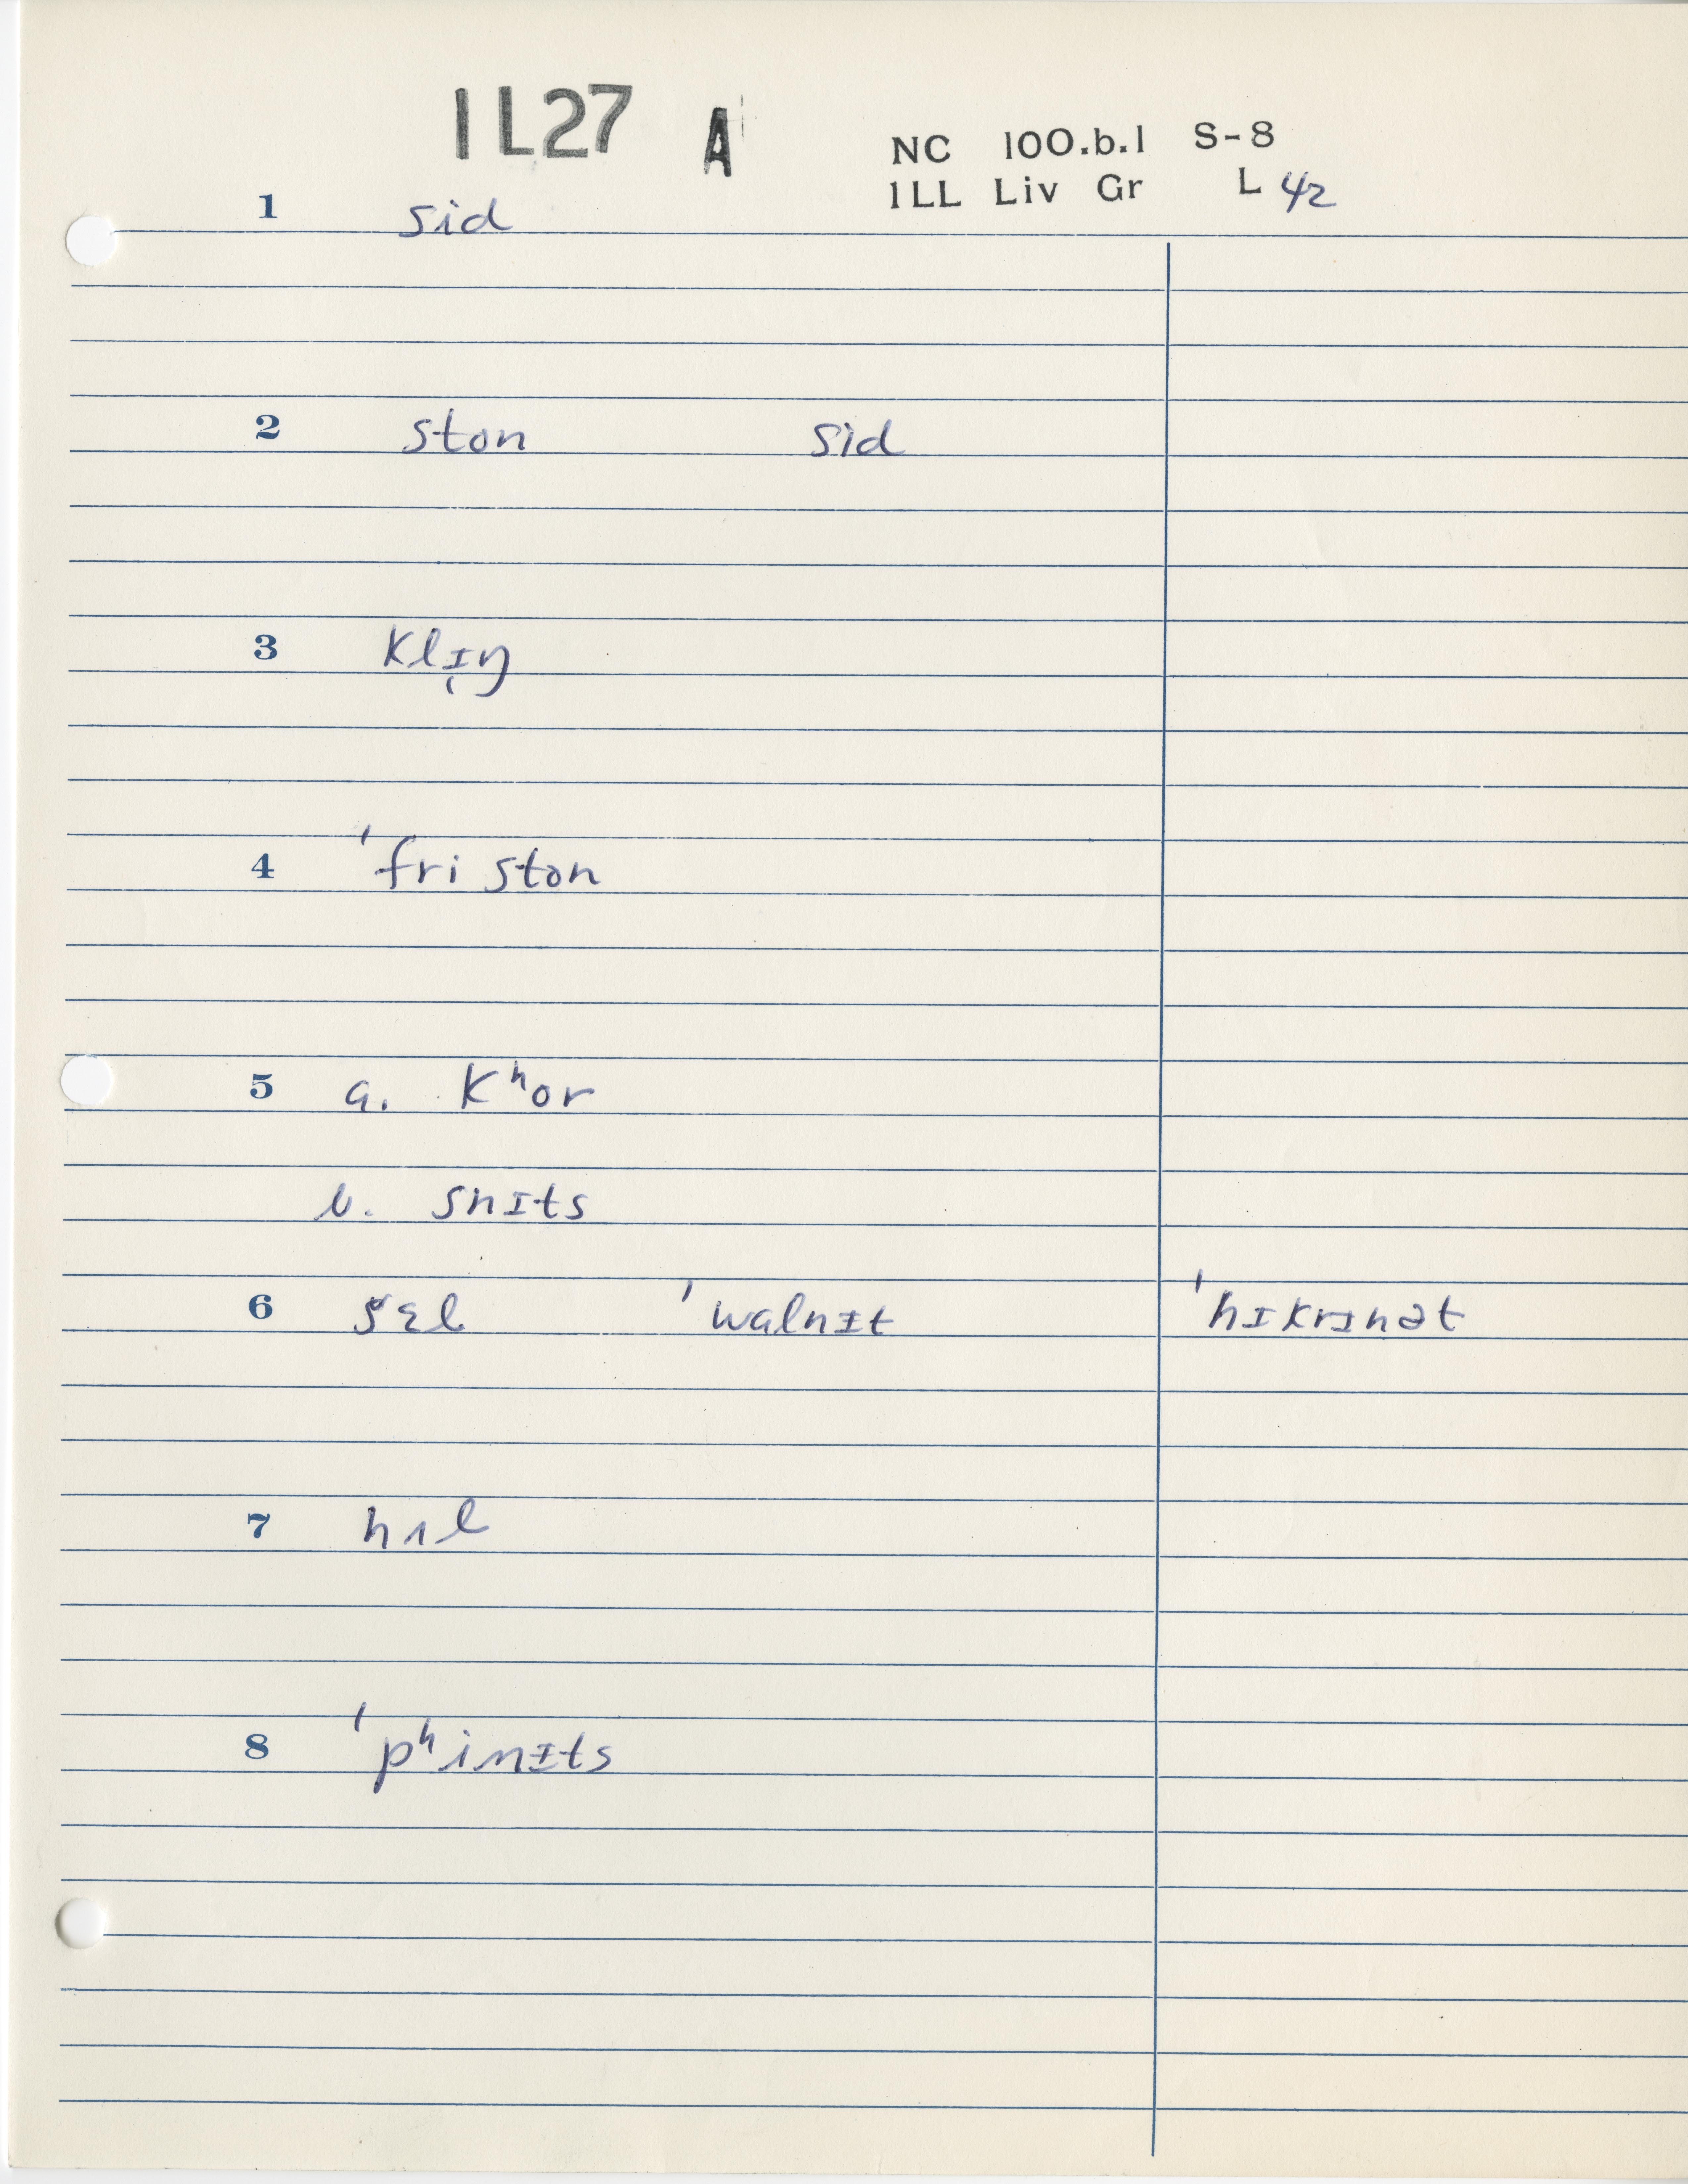 1L27 A
NC 100.b.1 S-8
1LL Liv Gr L 42
1 sid
2 ston sid
3 klɪ̨ŋ
4 ˈfri ston
5 a. kʰor
b. snɪts
6 ˈwalnɪt ˈhɪkrɪnət
7 hʌl
8 ˈpʰinɪts